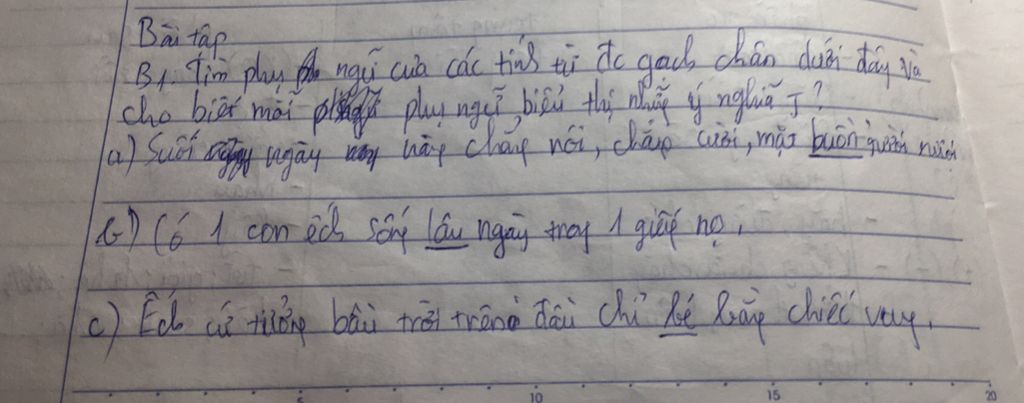 Bài tập
B1. Tìm phụ ngữ của các tính từ đc gạch chân dưới đây và
cho biết mỗi phụ ngữ biểu thị những ý nghĩa J?
a) Suốt ngày nàng chẳng nói, chẳng cười, mặt buồn rười rượi
b) Có 1 con ếch sống lâu ngày trong 1 giếng nọ.
c) Ếch cứ tưởng bầu trời trên đầu chỉ bé bằng chiếc vung.
5 10 15 20